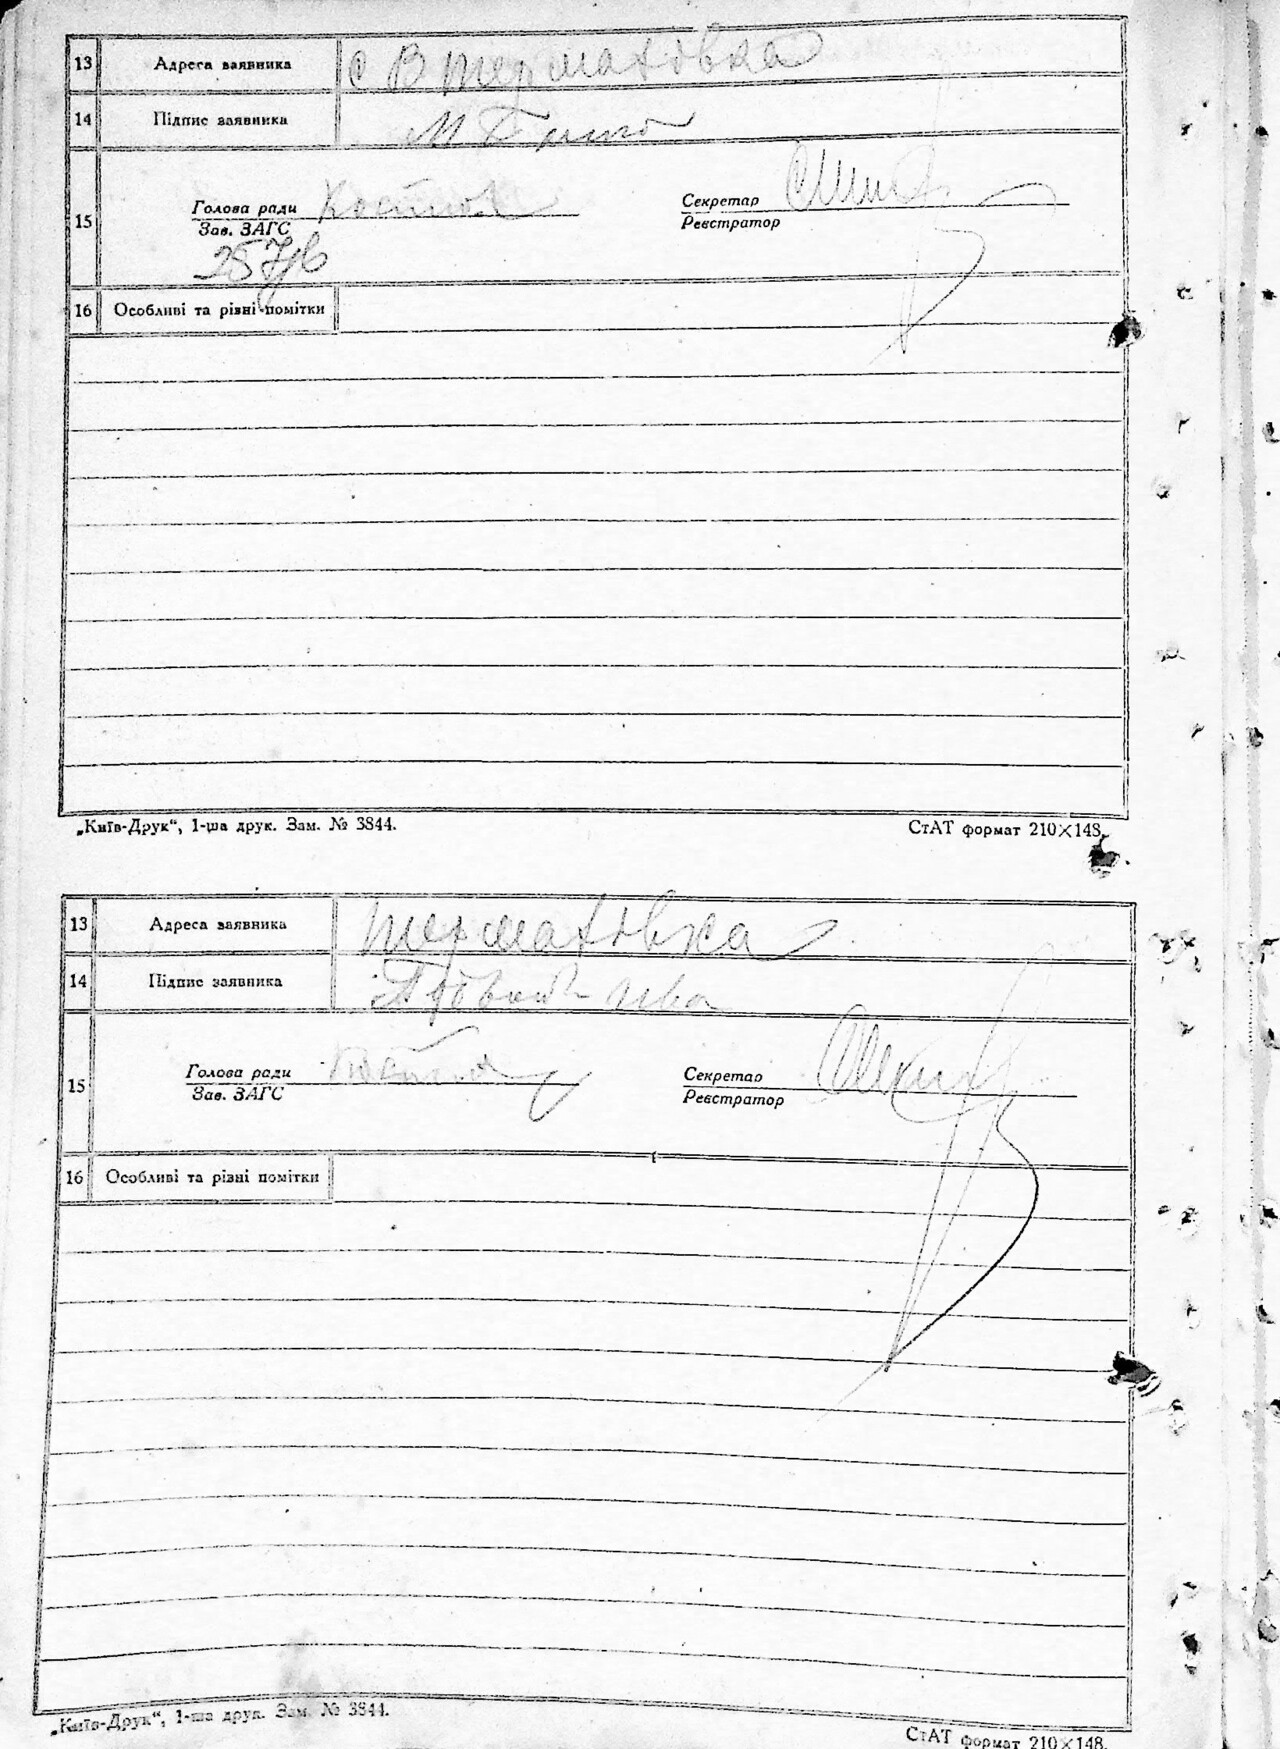 13 Адреса заявника с В термаховка
14 Підпис заявника
15 Голова ради Секретар
Зав. ЗАГС Реєстратор
16 Особливі та різні помітки
„Київ-Друк“, 1-ша друк. Зам. № 3844. СтАТ формат 210×148.
13 Адреса заявника термаховка
14 Підпис заявника
15 Голова ради Секретар
Зав. ЗАГС Реєстратор
16 Особливі та різні помітки
„Київ-Друк“, 1-ша друк. Зам. № 3844. СтАТ формат 210×148.